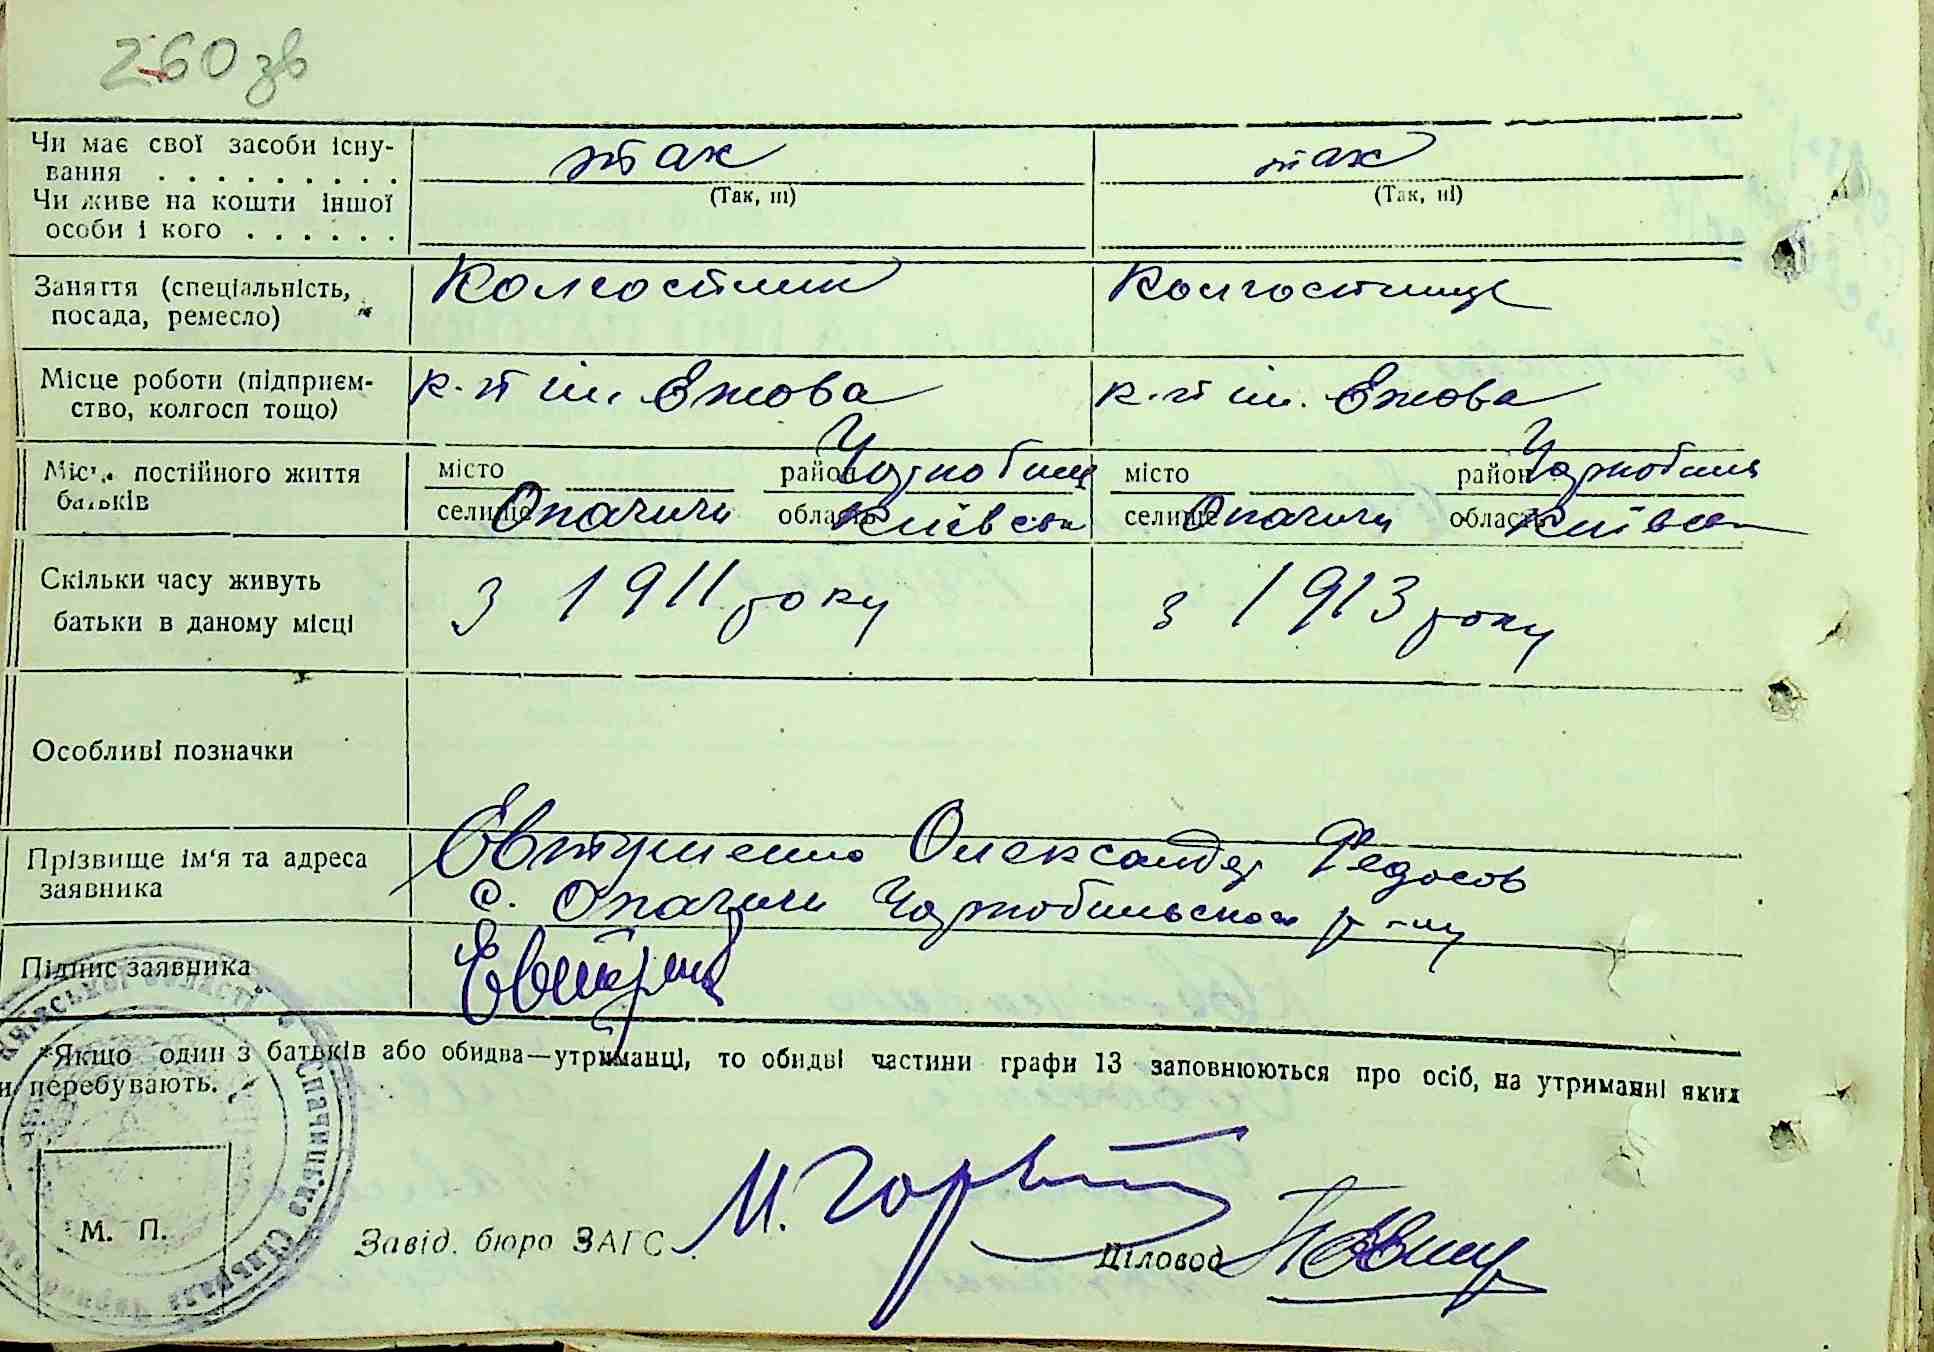 260 зв
Чи має свої засоби існу-
вання . . . . . . . . . . так так
(Так, ні) (Так, ні)
Чи живе на кошти іншої
особи і кого . . . . . .
Заняття (спеціальність, Колгоспник Колгоспниця
посада, ремесло)
Місце роботи (підприєм- к-п ім. Ежова к-п ім. Ежова
ство, колгосп тощо)
Місце постійного життя місто район Чорнобиль місто район Чорнобиль
батьків селище Опачичи область Київськ селище Опачичи область Київськ
Скільки часу живуть з 1911 року з 1913 року
батьки в даному місці
Особливі позначки
Прізвище ім'я та адреса Евтушенко Олександр Федосов
заявника с. Опачичи Чорнобильского р-ну
Підпис заявника
*Якщо один з батьків або обидва—утриманці, то обидві частини графи 13 заповнюються про осіб, на утриманні яких
перебувають.
М. П.
Завід. бюро ЗАГС М.
Діловод
Київської області Опачицька сільрада